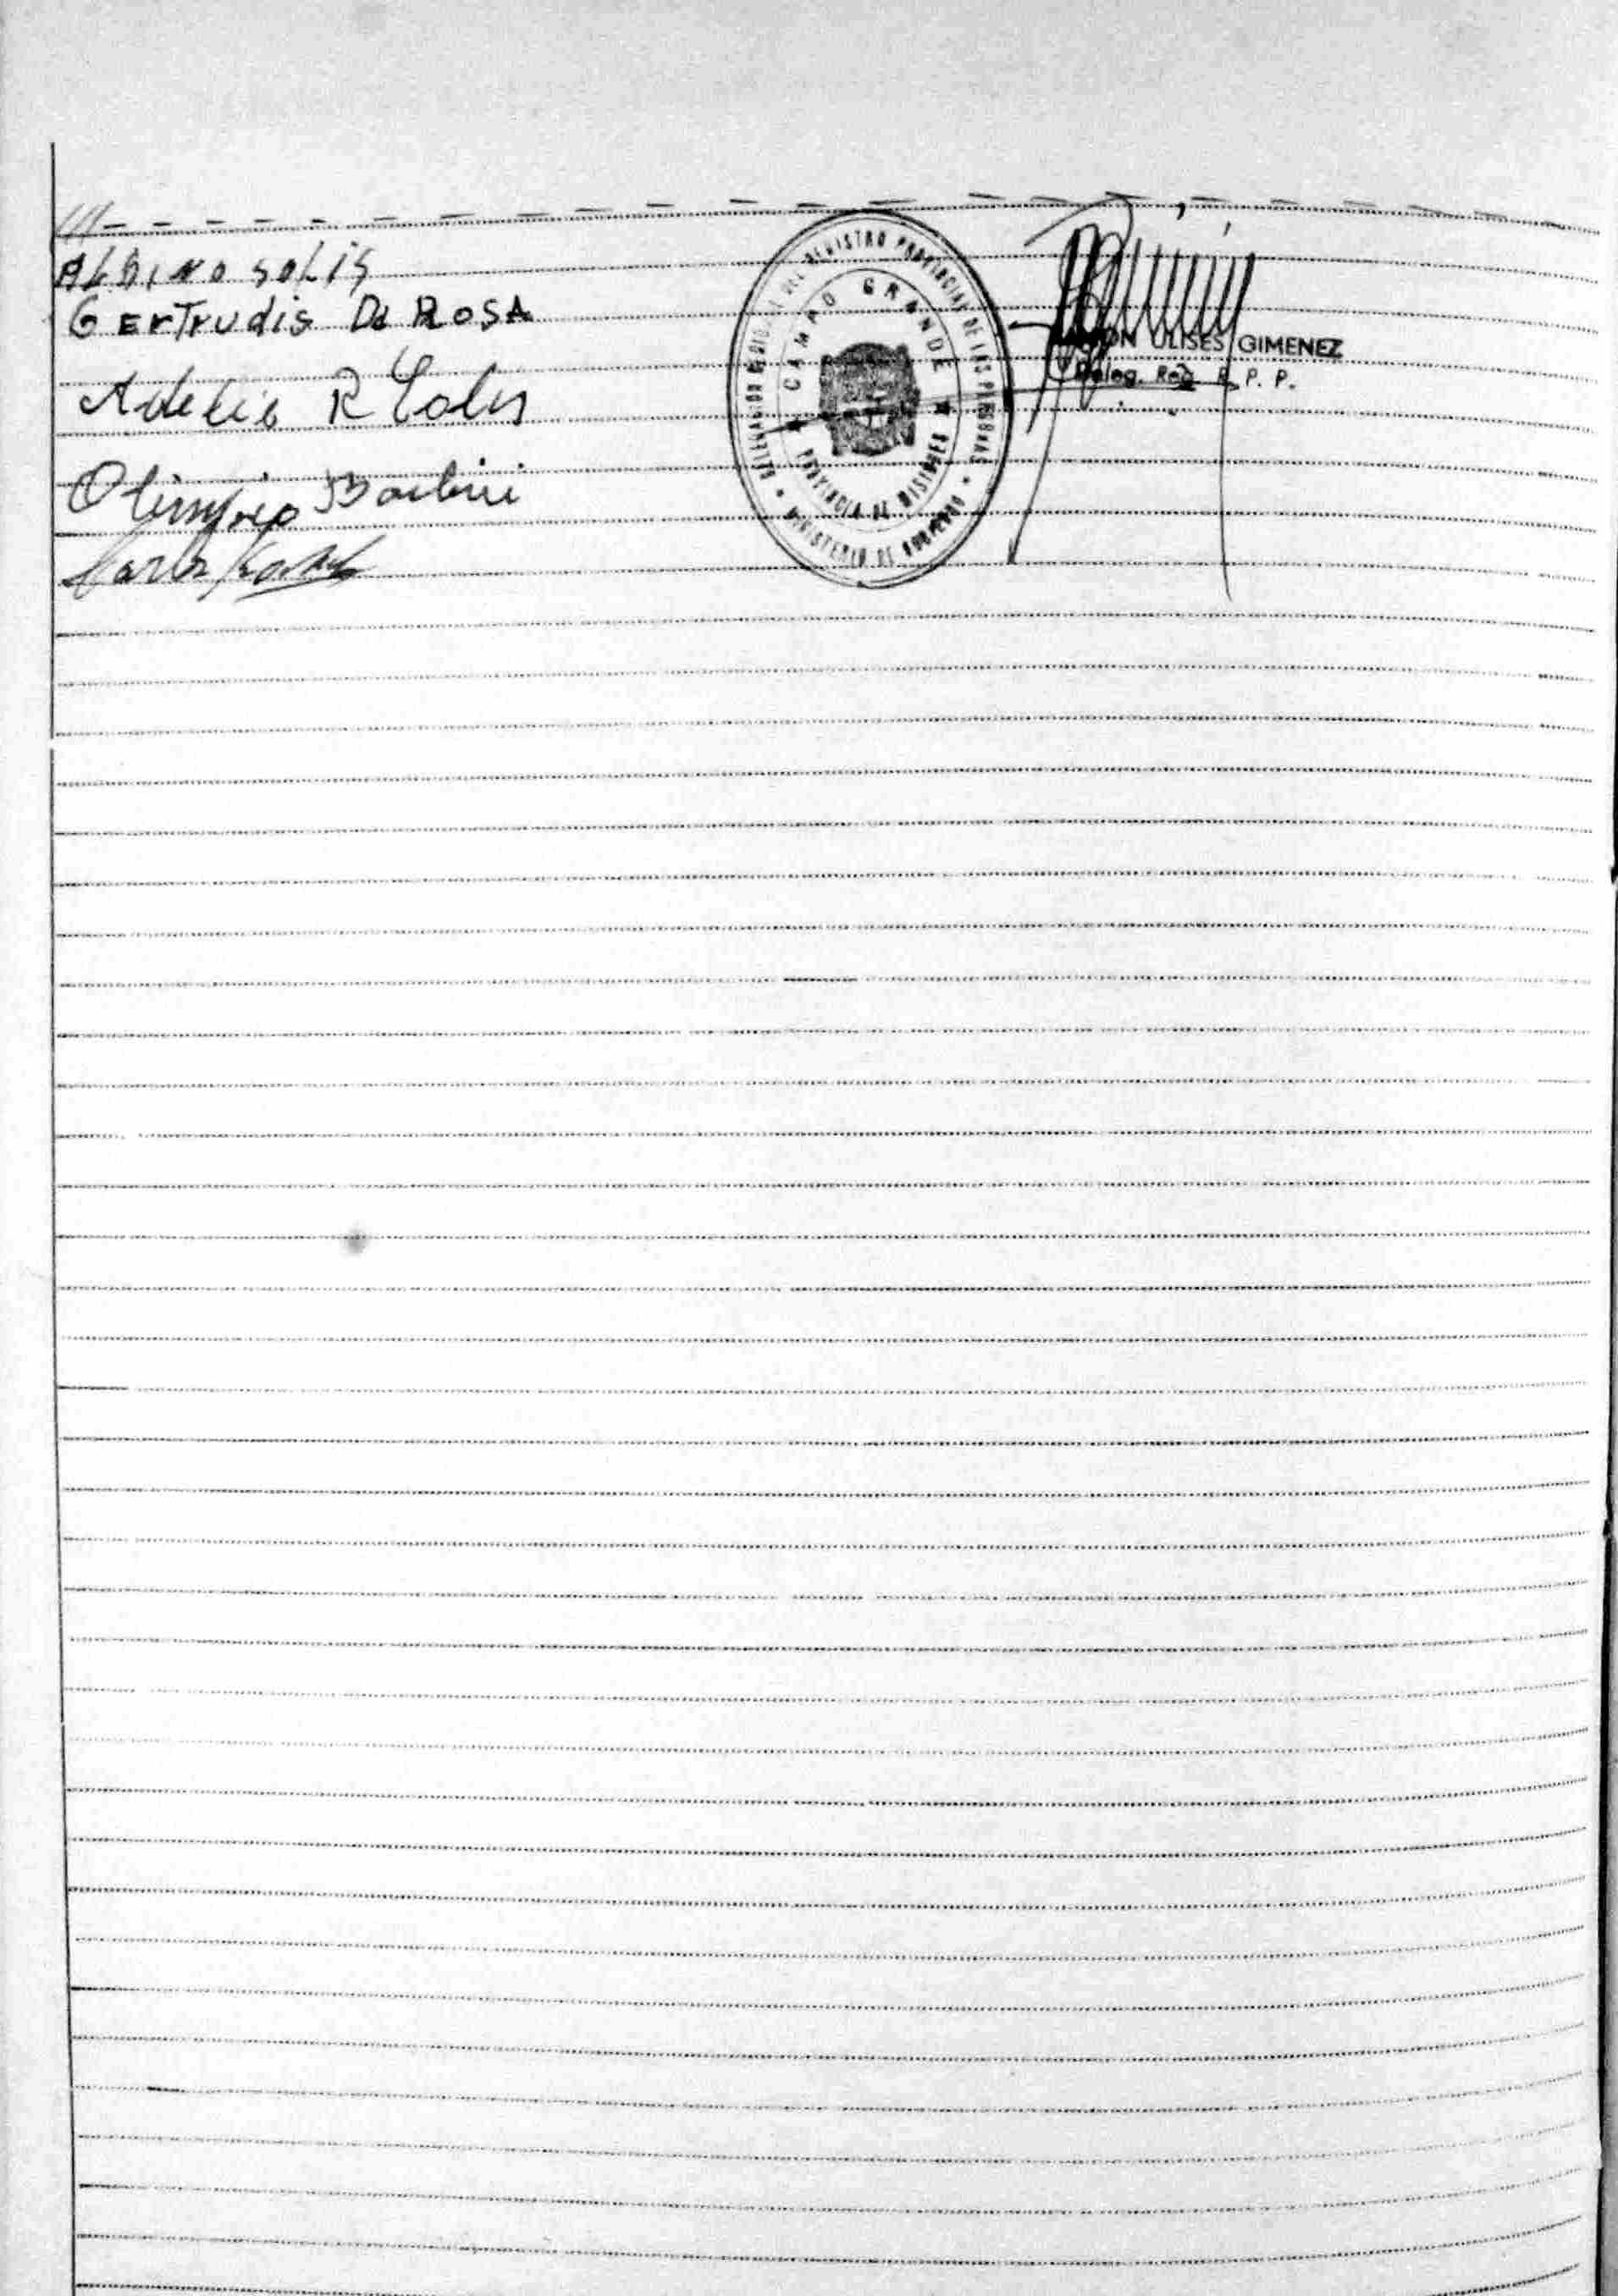 ///- - - - - - - - - - - - - - - - - - - -
ALBINO SOLIS
GErTrudis Da ROSA
Adelio R Solis
Olimpio
DELEGACION REGIONAL DEL REGISTRO PROVINCIAL DE LAS PERSONAS
CAMPO GRANDE
PROVINCIA DE MISIONES
MINISTERIO DE GOBIERNO
ULISES GIMENEZ
Deleg. Reg. R. P. P.